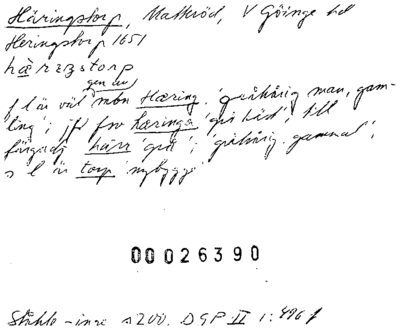 Häringstorp, Matteröd, V Göinge hd
Heringstorp 1651
hàrꞮzstorp
gen av
f l är väl mbn Hæring 'gråhårig man, gam-
ling'; jfr fno hæringr 'grå häst', till
färgadj hārr 'grå'; 'gråhårig, gammal';
s l är torp 'nybygge'
00026390
Ståhle -inge s 200. DGP II 1:496 f